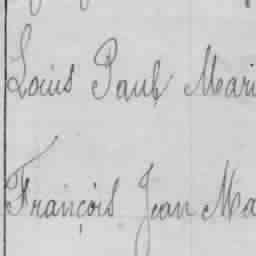 Louis Paul Mari
François Jean Ma